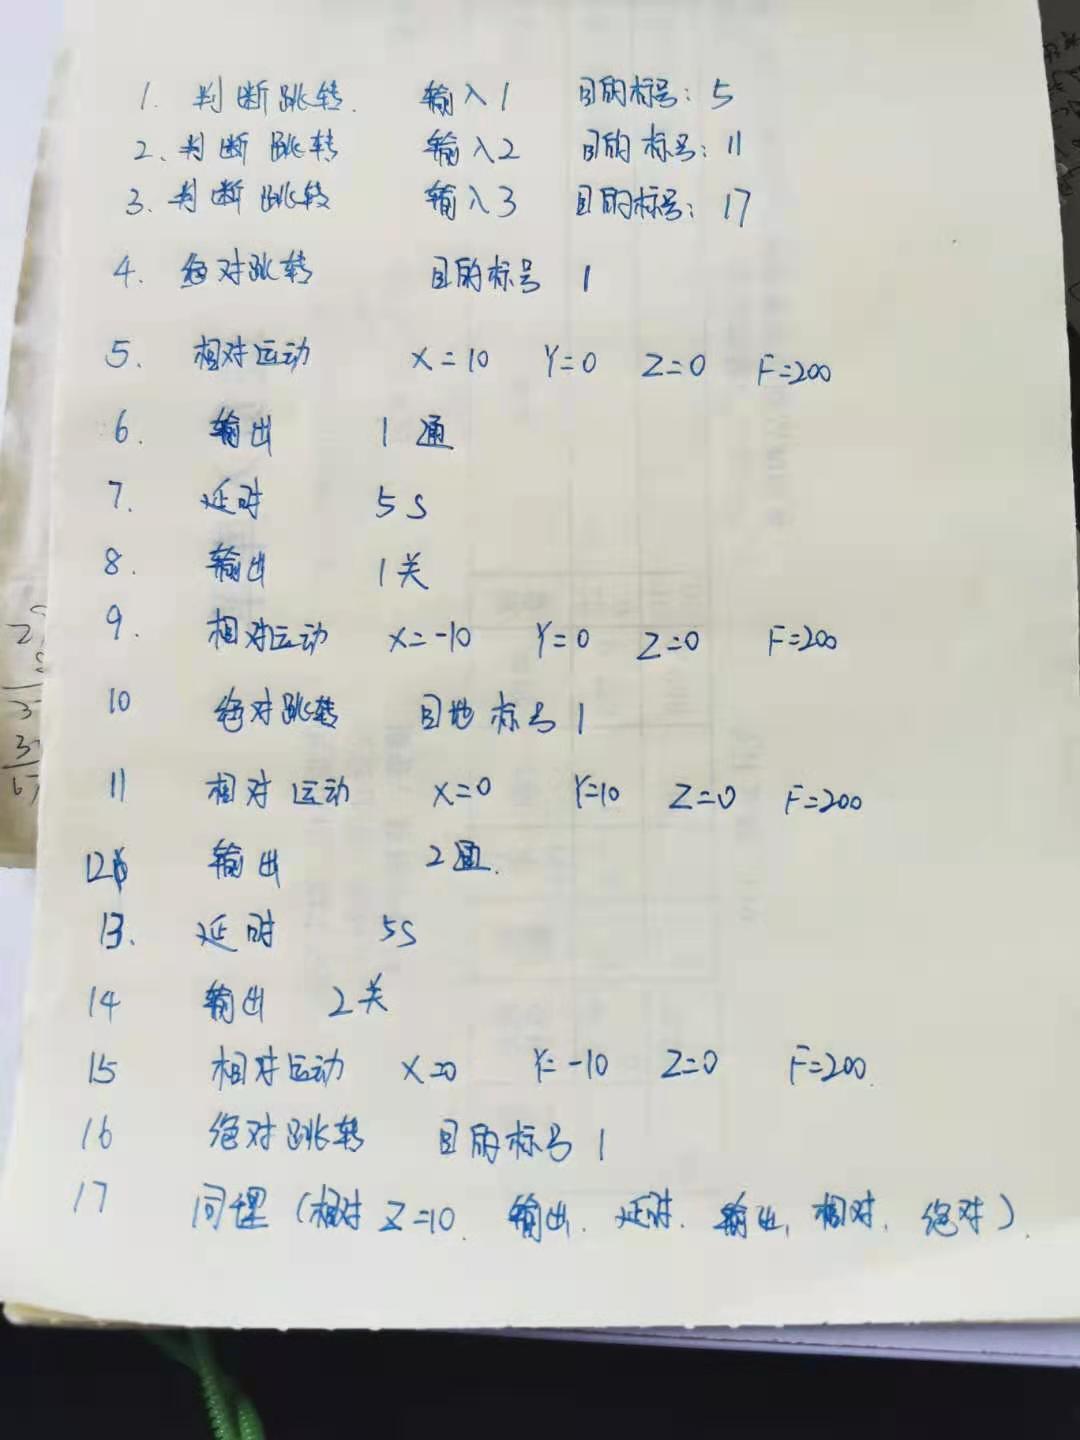 1. 判断跳转. 输入1 目的标号: 5
2. 判断跳转 输入2 目的标号: 11
3. 判断跳转 输入3 目的标号: 17
4. 绝对跳转 目的标号 1
5. 相对运动 X=10 Y=0 Z=0 F=200
6. 输出 1通
7. 延时 5S
8. 输出 1关
9. 相对运动 X=-10 Y=0 Z=0 F=200
10 绝对跳转 目地标号1
11 相对运动 X=0 Y=10 Z=0 F=200
12 输出 2通.
13. 延时 5S
14 输出 2关
15 相对运动 X=0 Y=-10 Z=0 F=200.
16 绝对跳转 目的标号1
17 同理 (相对 Z=10. 输出. 延时. 输出, 相对. 绝对).